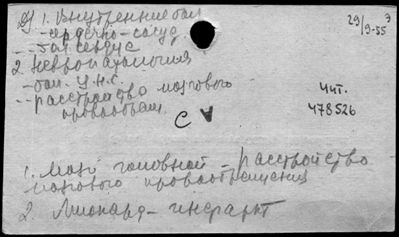 1. Внутренние бол
сердечно-сосуд.
бол. сердце
29/9-55 э
2. Невропатология
- бол. ц.н.с.
- расстройство мозгового
кровообращ.
Чит.
478526
С А
1. Мозг головной - расстройство
мозгового кровообращения
2. Миокард - инфаркт